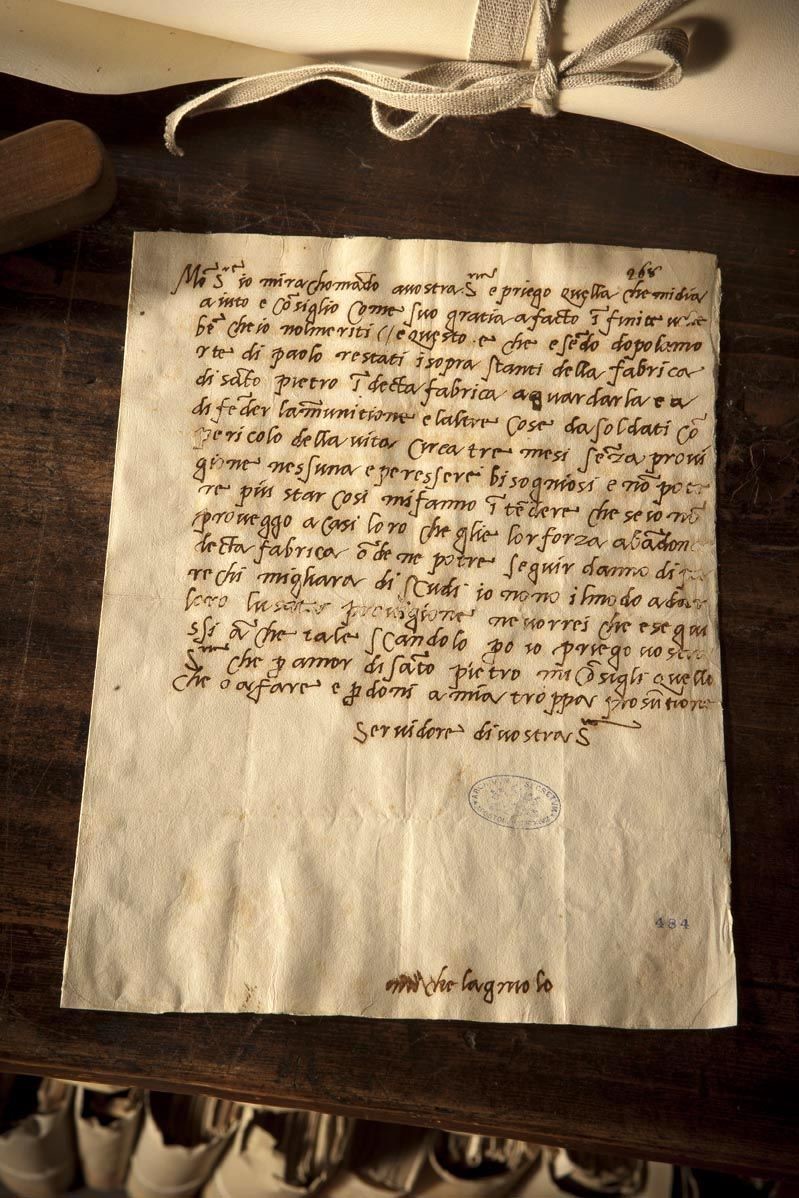 268
Mo S.re io mi rachomādo a vostra S.ria e priego quella che mi dia
aiuto e cōsiglio come suo gratia a facto ī finite
bē che io nol meriti // e questo e che esēdo dopo la mo
rte di paolo restati i sopra stanti della fabrica
di sāto pietro ī decta fabrica a guardarla e a
difēder la munitione e l altre cose da soldati cō
pericolo della vita circa tre mesi sēza provi
gione nessuna e per essere bisogniosi e nō pote
re piu star cosi mi fanno ī tēdere che se io nō
proveggo a casi loro che gli e lor forza abādon
decta fabrica ōde ne potre seguir danno di
rechi migliara di scudi io nō no il modo a dar
loro provigione ne vorrei che e segui
ssi ā che tale scandolo po io priego vostra
S.ria che p amor di sāto pietro mi cōsigli quello
che o a fare e p doni a mia troppa prosūtione
servidore di vostra S.ria
ARCHIVUM SECRETUM
484
michelagniolo